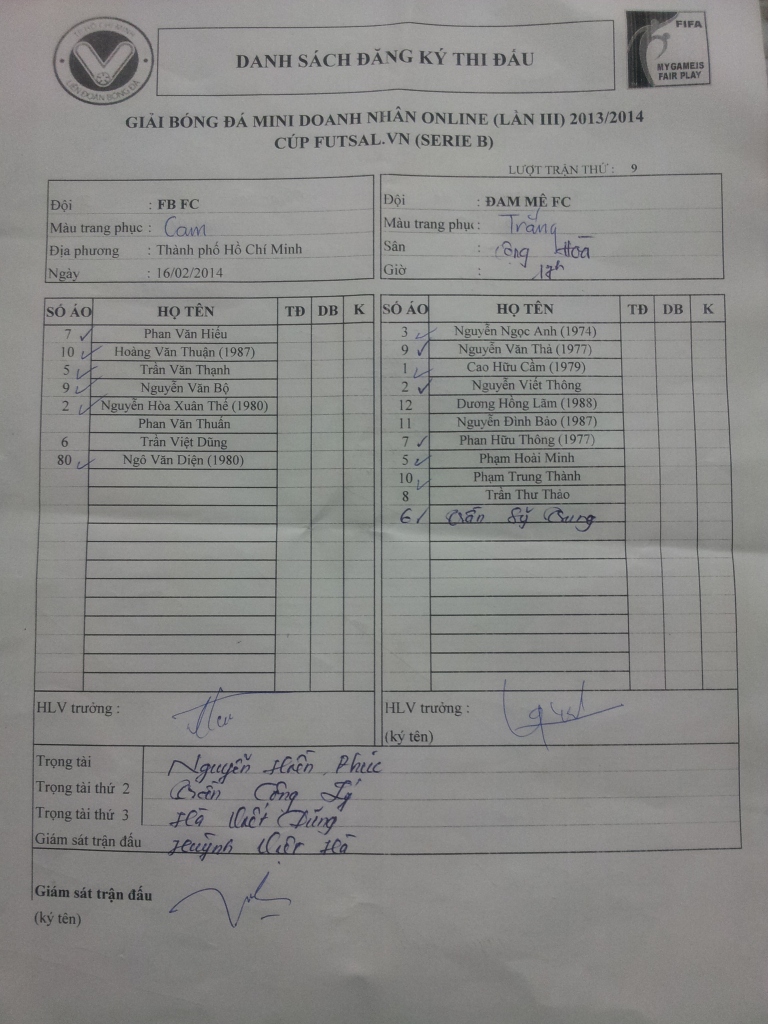 TP HỒ CHÍ MINH
LIÊN ĐOÀN BÓNG ĐÁ
DANH SÁCH ĐĂNG KÝ THI ĐẤU
FIFA
MY GAME IS
FAIR PLAY
GIẢI BÓNG ĐÁ MINI DOANH NHÂN ONLINE (LẦN III) 2013/2014
CÚP FUTSAL.VN (SERIE B)
LƯỢT TRẬN THỨ : 9
Đội : FB FC
Màu trang phục : Cam
Địa phương : Thành phố Hồ Chí Minh
Ngày : 16/02/2014
Đội : ĐAM MÊ FC
Màu trang phục : Trắng
Sân : Cộng Hòa
Giờ : 17h
SỐ ÁO HỌ TÊN TĐ DB K
7 Phan Văn Hiếu
10 Hoàng Văn Thuận (1987)
5 Trần Văn Thạnh
9 Nguyễn Văn Bộ
2 Nguyễn Hòa Xuân Thế (1980)
Phan Văn Thuấn
6 Trần Việt Dũng
80 Ngô Văn Diện (1980)
SỐ ÁO HỌ TÊN TĐ DB K
3 Nguyễn Ngọc Anh (1974)
9 Nguyễn Văn Thả (1977)
1 Cao Hữu Cầm (1979)
2 Nguyễn Viết Thông
12 Dương Hồng Lãm (1988)
11 Nguyễn Đình Bảo (1987)
7 Phan Hữu Thông (1977)
5 Phạm Hoài Minh
10 Phạm Trung Thành
8 Trần Thư Thảo
6 Trần Sỹ
HLV trưởng :
HLV trưởng :
(ký tên)
Trọng tài Nguyễn Phúc
Trọng tài thứ 2 Trần Công
Trọng tài thứ 3 Hà Việt Dũng
Giám sát trận đấu Huỳnh Việt Hà
Giám sát trận đấu
(ký tên)